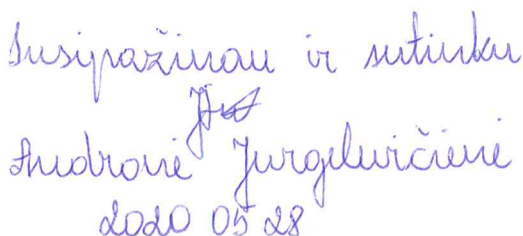 Susipažinau ir sutinku
Andronė Jurgelevičienė
2020 05 28